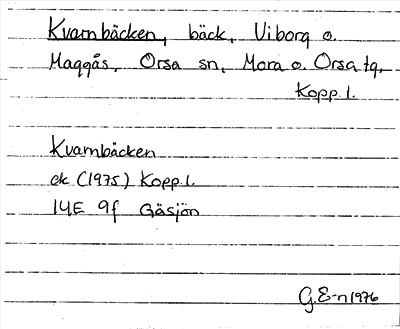 Kvarnbäcken, bäck, Viborg o.
Maggås, Orsa sn, Mora o. Orsa tg,
Kopp. l.
Kvarnbäcken
ek (1975) Kopp l.
14E 9f Gäsjön
G.E-n 1976